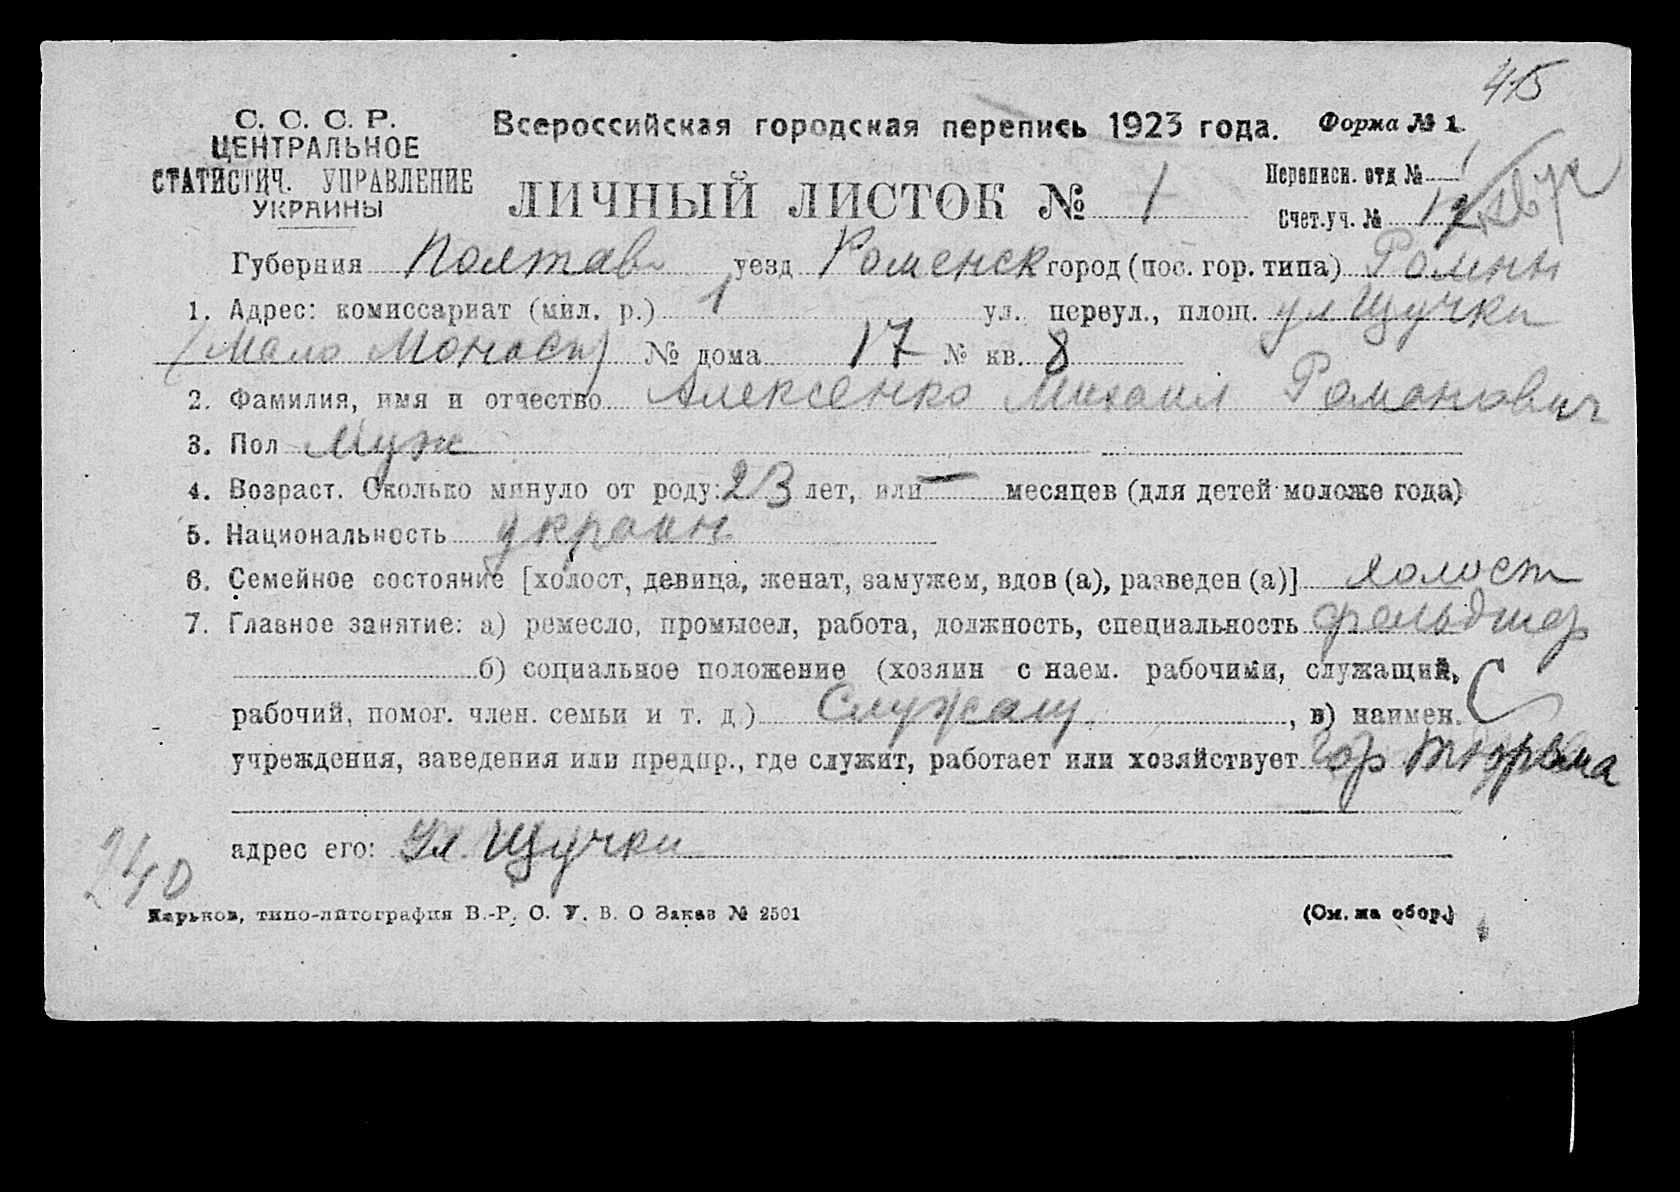 415
С. С. С. Р.
ЦЕНТРАЛЬНОЕ
СТАТИСТИЧ. УПРАВЛЕНИЕ
УКРАИНЫ
Всероссийская городская перепись 1923 года.
Форма № 1.
ЛИЧНЫЙ ЛИСТОК № 1
Переписн. отд № 1
Счет.уч. № 12
Губерния Полтав уезд Роменск город (пос. гор. типа) Ромны
1. Адрес: комиссариат (мил. р.) 1 ул. переул., площ. ул Щучки
(Мало Монаст) № дома 17 № кв. 8
2. Фамилия, имя и отчество Алексенко Михаил Романович
3. Пол Муж
4. Возраст. Сколько минуло от роду: 23 лет, или — месяцев (для детей моложе года)
5. Национальность украин
6. Семейное состояние [холост, девица, женат, замужем, вдов (а), разведен (а)] холост
7. Главное занятие: а) ремесло, промысел, работа, должность, специальность фельдшер
б) социальное положение (хозяин с наем. рабочими, служащий,
рабочий, помог. член. семьи и т. д) Служащ. , в) наимен. С
учреждения, заведения или предпр., где служит, работает или хозяйствует Гор тюрьма
адрес его: Ул. Щучки
240
Харьков, типо-литография В.-Р. С. У. В. О Заказ № 2501
(См. на обор.)